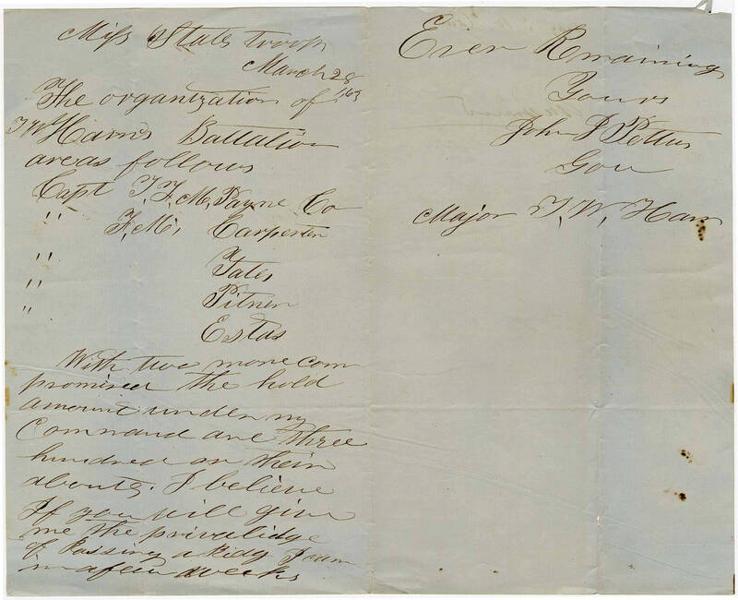 Miss State troops
March 28
/63
The organization of
T W Ham's Battalion
areas follows
Capt T. F. M. Payne Co
" F. M. Carpenter
" Yates
" Pitner
" Estas
With two more com
promised the hold
amount under my
Command are three
hundred or their
abouts. I believe
If you will give
me the privalidge
of Raising a Ridg I can
in a few weeks
Ever Remaining
Yours
John J Pettus
Gov
Major T. W. Ham